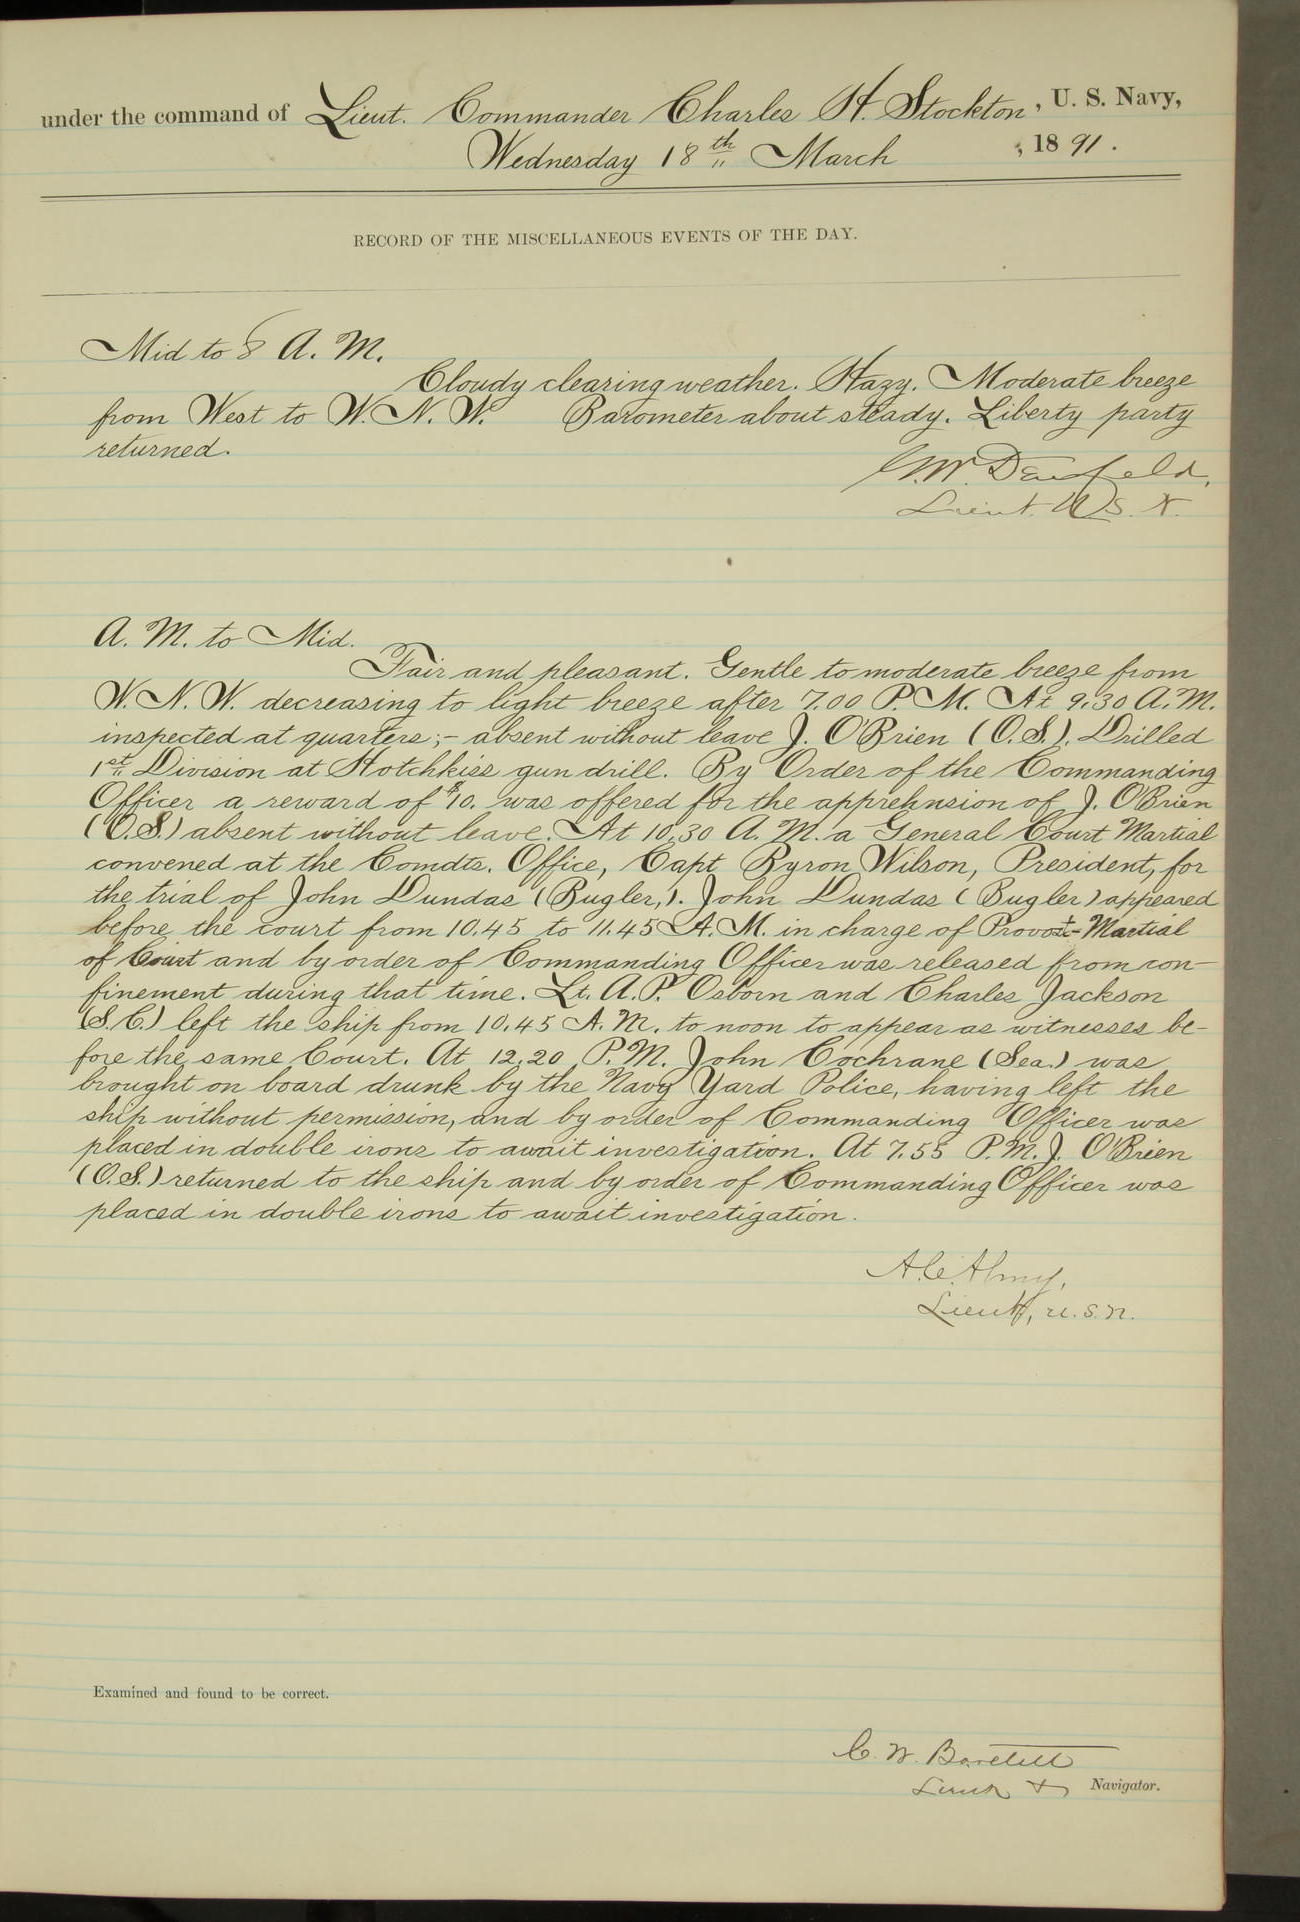 under the command of Lieut. Commander Charles H. Stockton, U. S. Navy,
Wednesday 18th March , 1891.
RECORD OF THE MISCELLANEOUS EVENTS OF THE DAY.
Mid to 8 A. M.
Cloudy clearing weather. Hazy. Moderate breeze
from West to W. N. W. Barometer about steady. Liberty party
returned.
G. W. Denfeld,
Lieut. U. S. N.
A. M. to Mid.
Fair and pleasant. Gentle to moderate breeze from
W. N. W. decreasing to light breeze after 7.00 P. M. At 9.30 A. M.
inspected at quarters;- absent without leave J. O'Brien (O.S.). Drilled
1st Division at Hotchkiss gun drill. By Order of the Commanding
Officer a reward of $10. was offered for the apprehnsion of J. O'Brien
(O.S.) absent without leave. At 10.30 A. M. a General Court Martial
convened at the Comdts. Office, Capt Byron Wilson, President, for
the trial of John Dundas (Bugler,). John Dundas (Bugler) appeared
before the court from 10.45 to 11.45 A. M. in charge of Provost-Martial
of Court and by order of Commanding Officer was released from con-
finement during that time. Lt. A. P. Osborn and Charles Jackson
(S.C.) left the ship from 10.45 A. M. to noon to appear as witnesses be-
fore the same Court. At 12.20 P. M. John Cochrane (Sea.) was
brought on board drunk by the Navy Yard Police, having left the
ship without permission, and by order of Commanding Officer was
placed in double irons to await investigation. At 7.55 P. M. J. O'Brien
(O.S.) returned to the ship and by order of Commanding Officer was
placed in double irons to await investigation.
A. C. Almy,
Lieut, U. S. N.
Examined and found to be correct.
C. W. Bartlett
Lieut & Navigator.